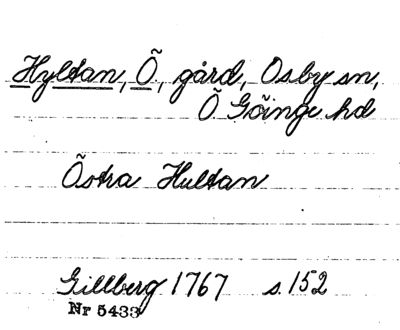 Hyltan, Ö, gård, Osby sn,
Ö Göinge hd
Östra Hultan
Gillberg 1767 s. 152
Nr 5433